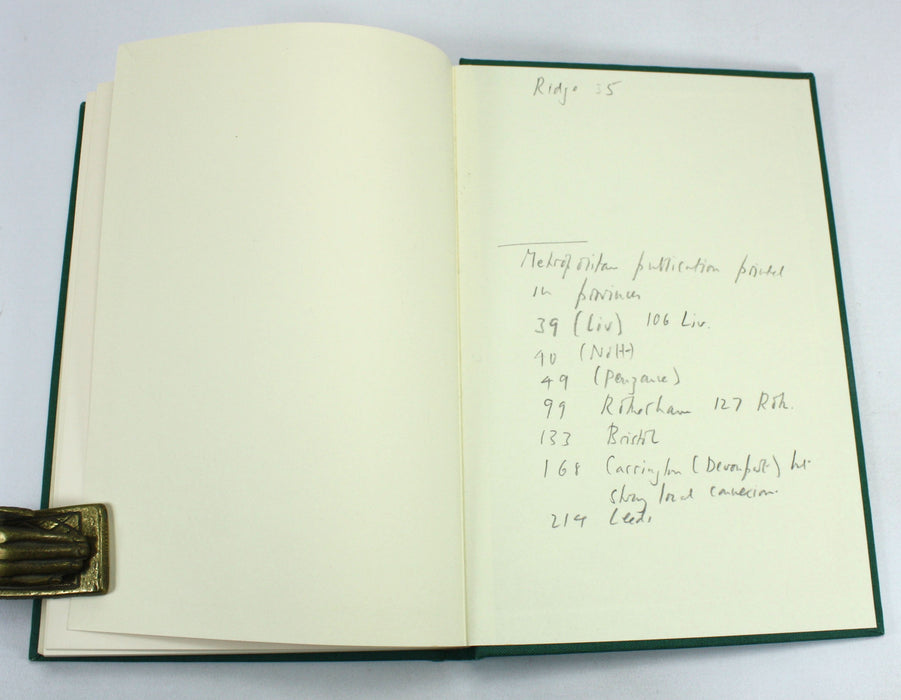 Ridge 35
Metropolitan publication printed
in provinces
39 (Liv) 106 Liv.
40 (Nott)
49 (Penzance)
99 Rotherham 127 Roth.
133 Bristol
168 Carrington (Devonport) but
strong local connexion.
214 Leeds